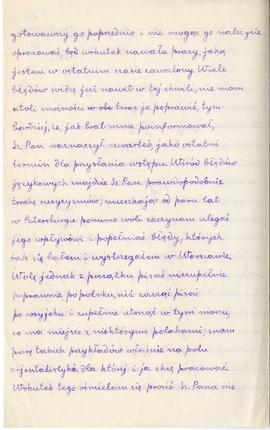 gotowawszy go poprzednio i nie mogąc go należycie
opracować, bo wskutek nawału pracy, jaką
jestem w ostatnim czasie zawalony. Wiele
błędów widzę już nawet w tej chwili, nie mam
atoli możności w oba teraz je poprawić, tym-
bardziej, że, jak brat mnie poinformował,
Sz. Pan naznaczył czwartek, jako ostatni
termin dla przysłania wstępu. Wśród błędów
językowych znajdzie Sz. Pan prawdopodobnie
trochę rusycyzmów; mieszkając od paru lat
w Petersburgu pomimo woli zaczynam ulegać
jego wpływowi i popełniać błędy, których
tak się bałem i wystrzegałem w Warszawie.
Wolę jednak z początku pisać niezupełnie
poprawnie po polsku, niż zacząć pisać
po rosyjsku i zupełnie utonąć w tym morzu,
co ma miejsce z niektórymi polakami; znam
parę takich przykładów właśnie na polu
orjentalistyki, dla której i ja chcę pracować.
Wskutek tego ośmielam się prosić Sz. Pana nie